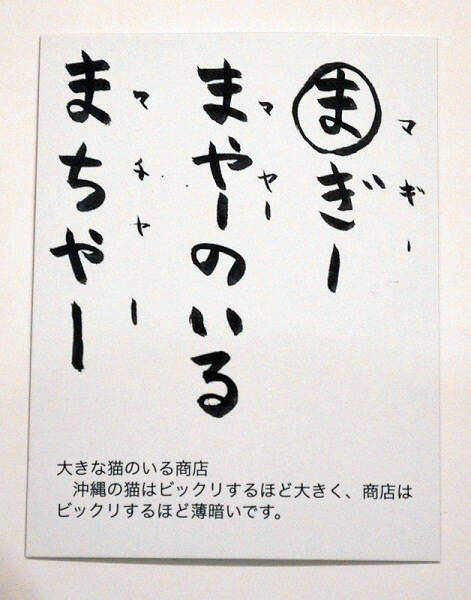 まぎー
マギー
まやーのいる
マヤー
まちやー
マチヤー
大きな猫のいる商店
　沖縄の猫はビックリするほど大きく、商店は
ビックリするほど薄暗いです。